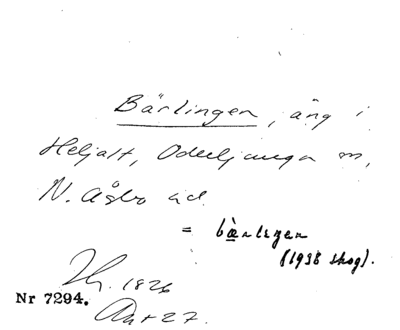 Bärlingen, äng i
Heljalt, Oderljunga sn,
N. Åsbo hd.
= bæ̀rliŋen
(1938 skog).
1826
Nr 7294.
27.